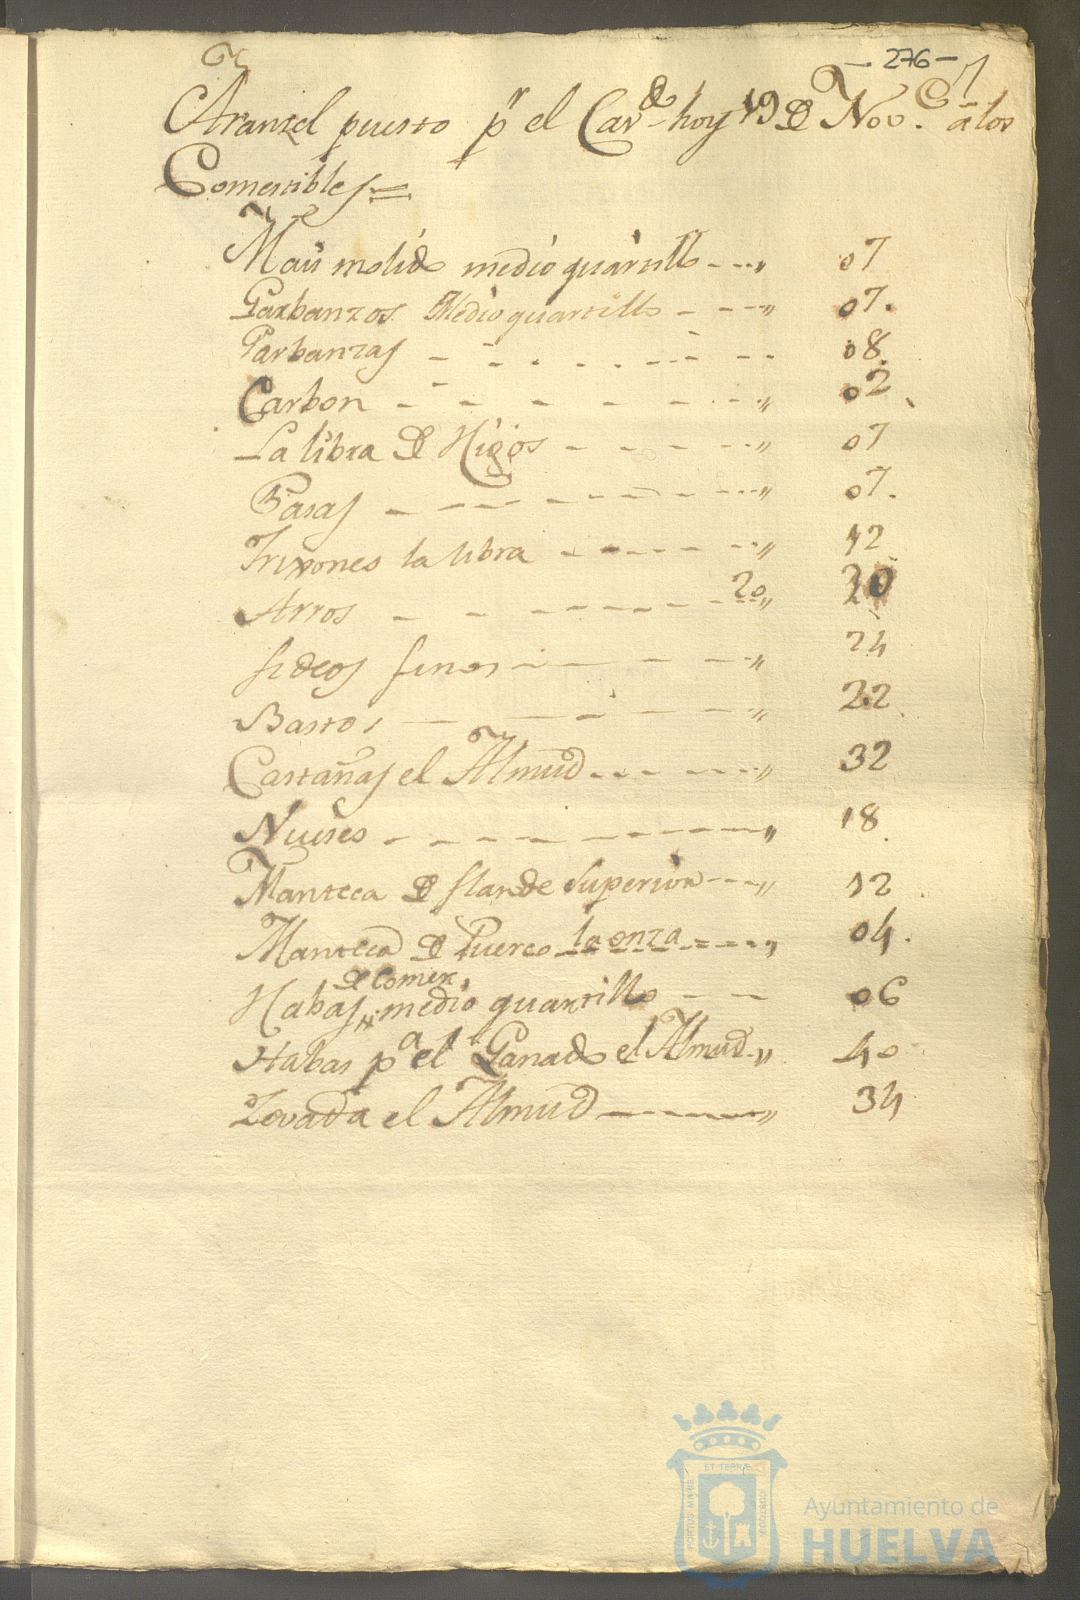 - 276 -
Aranzel puesto pr el Cavdo hoy 19 de Nove a los
Comestibles =
Maiz molido medio quartillo - - - " 07
Garbanzos Medio quartillo - - - " 07.
Garbanzas - - - - - - - - 08.
Carbon - - - - - - - - " 02
La libra de Higos - - - - - " 07
Pasas - - - - - - - - " 07.
Frixones la libra - - - - - - " 12
Arros - - - - - - - 20 " 20
fideos finos - - - - - " 24
Bastos - - - - - - " 22
Castañas el Almud - - - - - " 32
Nueses - - - - - - - - " 18
Manteca de flande Superior - - - " 12
Manteca de Puerco la onza - - - - " 04.
de Comer
Habas medio quartillo - - 06
Habas pa el Ganado el Almud - " 40
Zevada el Almud - - - - - " 34
ET TERRÆ
PORTUS MARIS
CUSTODIA
Ayuntamiento de
HUELVA